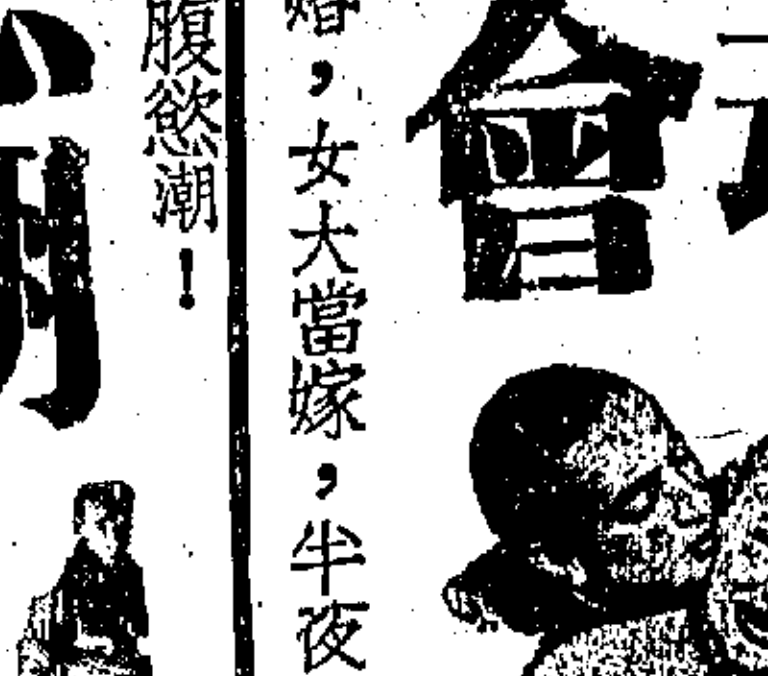 會
婚，女大當嫁，半夜
腹慾潮！